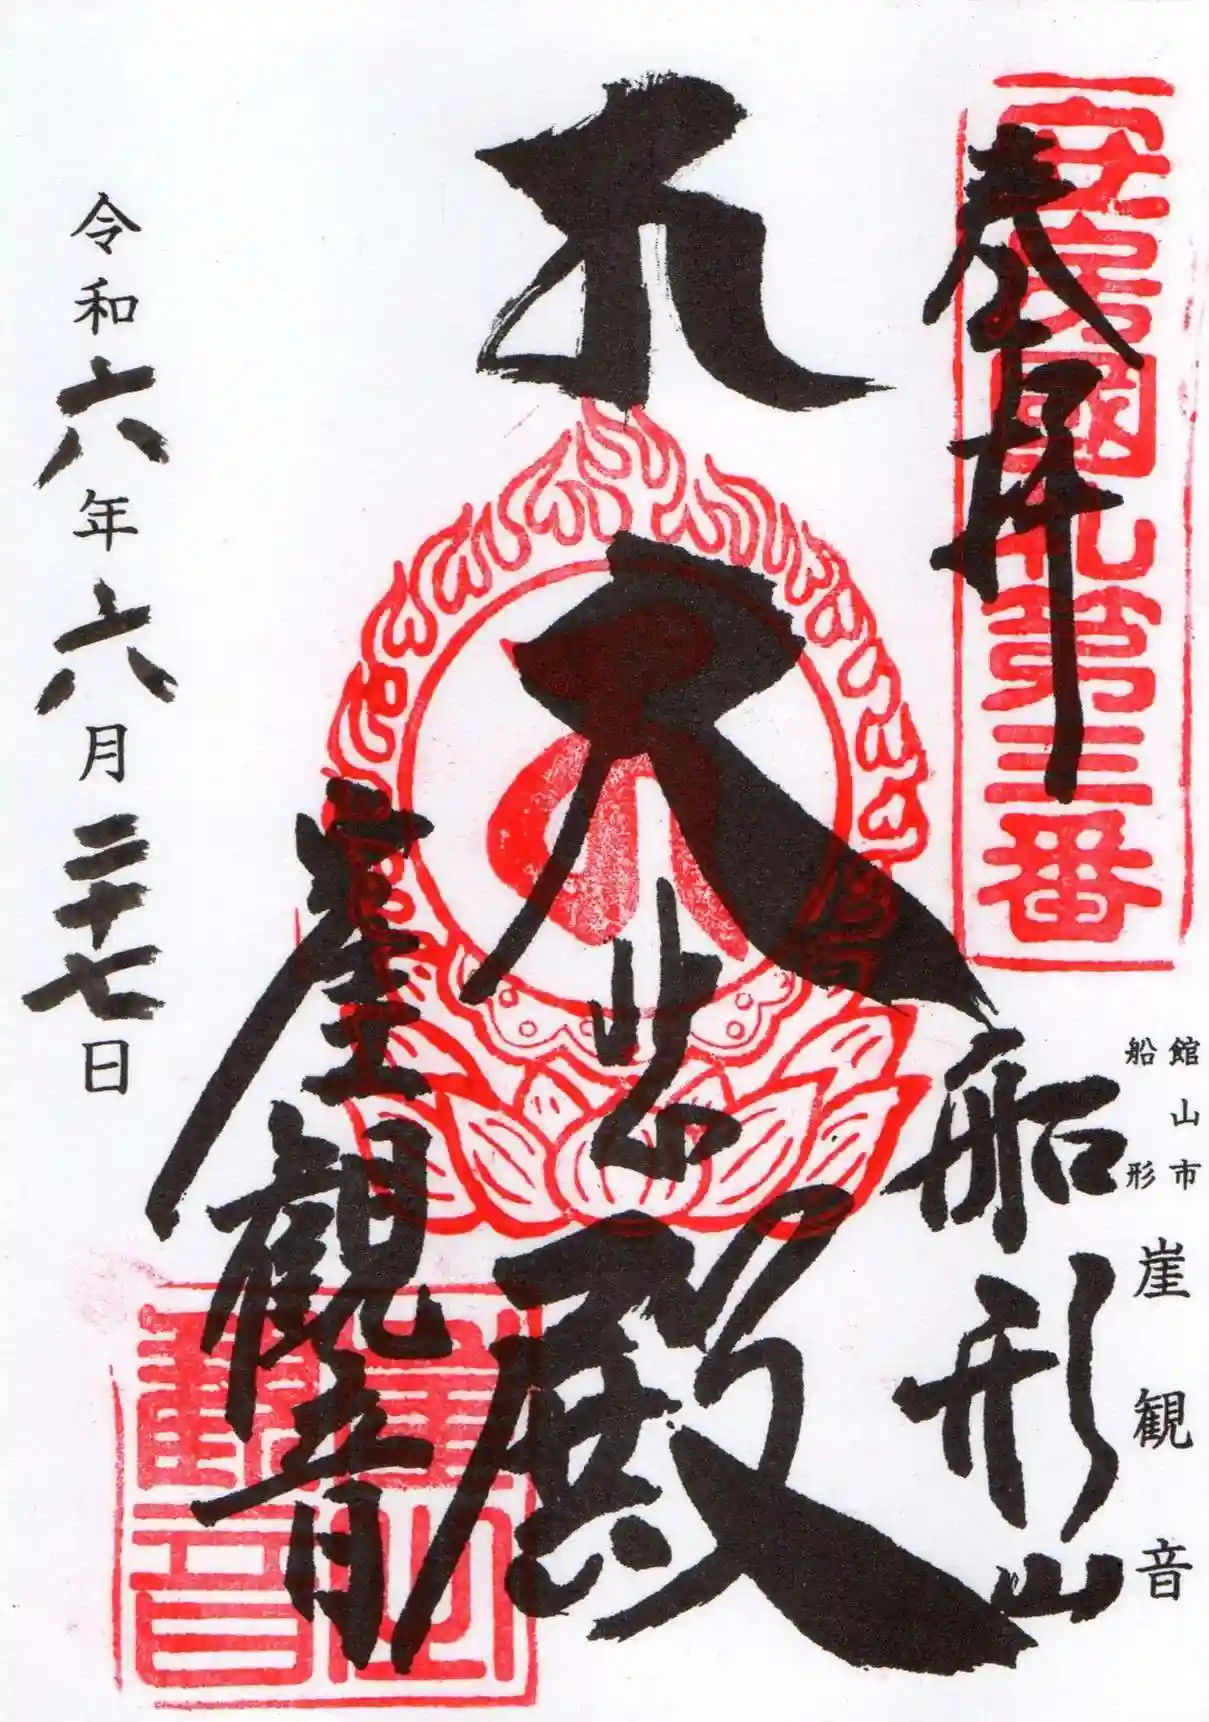 奉拝
安房國札第三番
館山市
船形
崖観音
船形山
大悲殿
崖觀音
令和六年六月二十七日